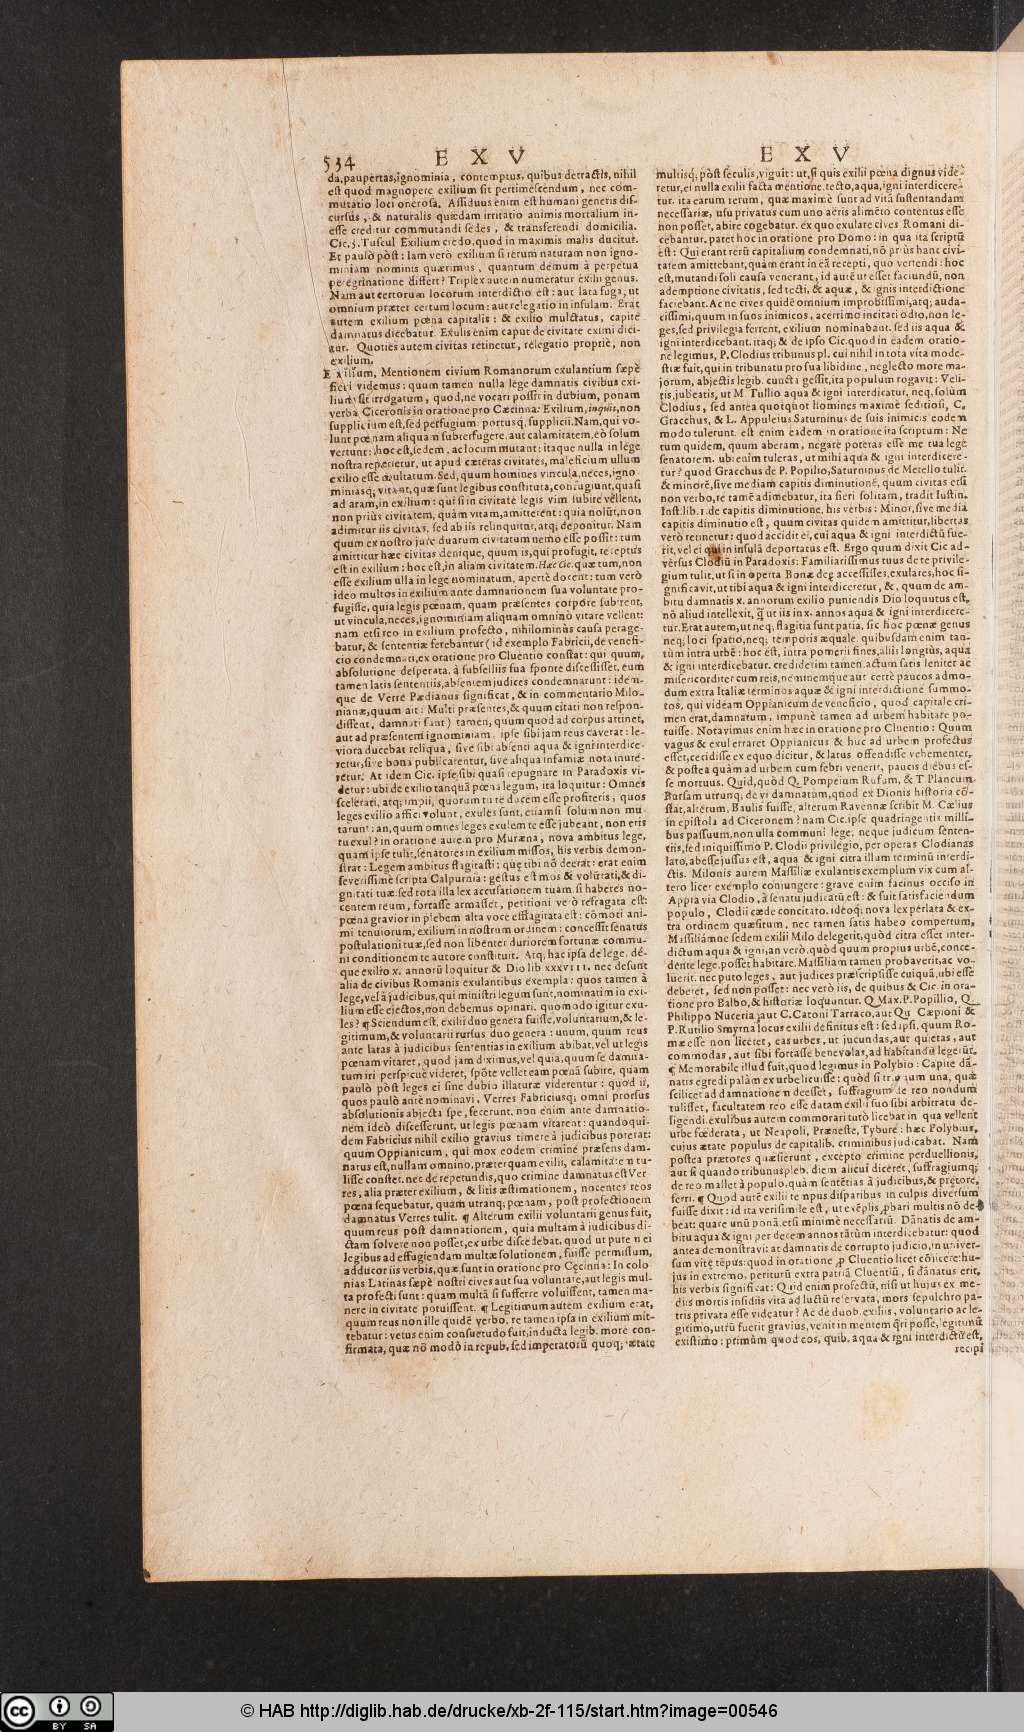 534 E X V
E X V
da, paupertas, ignominia, contemptus, quibus detractis, nihil
est quod magnopere exilium sit pertimescendum, nec com-
mutatio loci onerosa. Assiduus enim est humani generis dis-
cursus, & naturalis quædam irritatio animis mortalium in-
esse creditur commutandi sedes, & transferendi domicilia.
Cic. 3. Tuscul Exilium credo, quod in maximis malis ducitur.
Et paulò pòst: Iam verò exilium si rerum naturam non igno-
miniam nominis quærimus, quantum demum à perpetua
peregrinatione differt? Triplex autem numeratur exilii genus.
Nam aut certorum locorum interdictio est: aut lata fuga, ut
omnium præter certum locum: aut relegatio in insulam. Erat
autem exilium pœna capitalis: & exilio mulctatus, capite
damnatus dicebatur. Exulis enim caput de civitate eximi dici-
tur. Quoties autem civitas retinetur, relegatio propriè, non
exilium.
Exilium, Mentionem civium Romanorum exulantium sæpè
fieri videmus: quum tamen nulla lege damnatis civibus exi-
lium sit irrogatum, quod, ne vocari possit in dubium, ponam
verba Ciceronis in oratione pro Cæcinna: Exilium, inquit, non
supplicium est, sed perfugium portusq́, supplicii. Nam, qui vo-
lunt pœnam aliquam subterfugere, aut calamitatem, eò solum
vertunt: hoc est, sedem, ac locum mutant: itaque nulla in lege
nostra reperietur, ut apud cæteras civitates, maleficium ullum
exilio esse multatum. Sed, quum homines vincula, neces, igno-
miniasq; vitant, quæ sunt legibus constituta, confugiunt, quasi
ad aram, in exilium: qui si in civitate legis vim subire vellent,
non priùs civitatem, quàm vitam, amitterent: quia nolūt, non
adimitur iis civitas, sed ab iis relinquitur, atq; deponitur. Nam
quum ex nostro jure duarum civitatum nemo esse possit: tum
amittitur hæc civitas denique, quum is, qui profugit, receptus
est in exilium: hoc est, in aliam civitatem. Hæc Cic. quæ tum, non
esse exilium ulla in lege nominatum, apertè docent: tum verò
ideo multos in exilium ante damnationem sua voluntate pro-
fugisse, quia legis pœnam, quam præsentes corpore subirent,
ut vincula, neces, ignominiam aliquam omninò vitare vellent:
nam etsi reo in exilium profecto, nihilominùs causa perage-
batur, & sententiæ ferebantur (id exemplo Fabricii, de venefi-
cio condemnati, ex oratione pro Cluentio constat: qui quum,
absolutione desperata, à subselliis sua sponte discessisset, eum
tamen latis sententiis, absentem judices condemnarunt: idem-
que de Verre Pædianus significat, & in commentario Milo-
nianæ, quum ait: Multi præsentes, & quum citati non respon-
dissent, damnati sunt) tamen, quum quod ad corpus attinet,
aut ad præsentem ignominiam, ipse sibi jam reus caverat: le-
viora ducebat reliqua, sive sibi absenti aqua & igni interdice-
retur, sive bona publicarentur, sive aliqua infamiæ nota inure-
retur. At idem Cic. ipse sibi quasi repugnare in Paradoxis vi-
detur: ubi de exilio tanquā pœna legum, ita loquitur: Omnes
scelerati, atq; impii, quorum tu te ducem esse profiteris, quos
leges exilio affici volunt, exules sunt, etiamsi solum non mu-
tarunt: an, quum omnes leges exulem te esse jubeant, non eris
tu exul? in oratione autem pro Muræna, nova ambitus lege,
quam ipse tulit, senatores in exilium missos, his verbis demon-
strat: Legem ambitus flagitasti: quę tibi nō deerat: erat enim
severissimè scripta Calpurnia: gestus est mos & volūtati, & di-
gnitati tuæ: sed tota illa lex accusationem tuam si haberes no-
centem reum, fortasse armasset, petitioni verò refragata est:
pœna gravior in plebem alta voce efflagitata est: cōmoti ani-
mi tenuiorum, exilium in nostrum ordinem: concessit senatus
postulationi tuæ, sed non libenter duriorem fortunæ commu-
ni conditionem te autore constituit. Atq, hac ipsa de lege, dé-
que exilio x. annorū loquitur & Dio lib xxxviii. nec desunt
alia de civibus Romanis exulantibus exempla: quos tamen à
lege, vel à judicibus, qui ministri legum sunt, nominatim in exi-
lium esse ejectos, non debemus opinari. quomodo igitur exu-
les? ¶ Sciendum est, exilii duo genera fuisse, voluntarium, & le-
gitimum, & voluntarii rursus duo genera: unum, quum reus
ante latas à judicibus sententias in exilium abibat, vel ut legis
pœnam vitaret, quod jam diximus, vel quia, quum se damna-
tum iri perspicuè videret, spōte vellet eam pœnā subire, quam
paulò pòst leges ei sine dubio illaturæ viderentur: quod ii,
quos paulò ante nominavi, Verres Fabriciusq, omni prorsus
absolutionis abjecta spe, fecerunt. non enim ante damnatio-
nem ideò discesserunt, ut legis pœnam vitarent: quandoqui-
dem Fabricius nihil exilio gravius timere à judicibus poterat:
quum Oppianicum, qui mox eodem crimine præsens dam-
natus est, nullam omnino, præterquam exilii, calamitatem tu-
lisse constet. nec de repetundis, quo crimine damnatus est Ver-
res, alia præter exilium, & litis æstimationem, nocentes reos
pœna sequebatur, quam utranq; pœnam, post profectionem
damnatus Verres tulit. ¶ Alterum exilii voluntarii genus fuit,
quum reus post damnationem, quia multam à judicibus di-
ctam solvere non posset, ex urbe discedebat. quod ut putem ei
legibus ad effugiendam multæ solutionem, fuisse permissum,
adducor iis verbis, quæ sunt in oratione pro Cęcinna: In colo
nias Latinas sæpè nostri cives aut sua voluntate, aut legis mul-
ta profecti sunt: quam multā si sufferre voluissent, tamen ma-
nere in civitate potuissent. ¶ Legitimum autem exilium erat,
quum reus non ille quidē verbo, re tamen ipsa in exilium mit-
tebatur: vetus enim consuetudo fuit, inducta legib. more con-
firmata, quæ nō modò in repub. sed imperatorū quoq; ætate
multisq; pòst seculis, viguit: ut, si quis exilii pœna dignus vide-
retur, ei nulla exilii facta mentione, tecto, aqua, igni interdicere-
tur. ita earum rerum, quæ maximè sunt ad vitā sustentandam
necessariæ, usu privatus cum uno aëris alimēto contentus esse
non posset, abire cogebatur. ex quo exulare cives Romani di-
cebantur. patet hoc in oratione pro Domo: in qua ita scriptū
est: Qui erant rerū capitalium condemnati, nō priùs hanc civi-
tatem amittebant, quàm erant in eā recepti, quo vertendi: hoc
est, mutandi soli causa venerant, id autē ut esset faciundū, non
ademptione civitatis, sed tecti, & aquæ, & ignis interdictione
faciebant. Ac ne cives quidē omnium improbissimi, atq; auda-
cissimi, quum in suos inimicos, acerrimo incitati odio, non le-
ges, sed privilegia ferrent, exilium nominabant. sed iis aqua &
igni interdicebant. itaq; & de ipso Cic. quod in eadem oratio-
ne legimus, P. Clodius tribunus pl. cui nihil in tota vita mode-
stiæ fuit, qui in tribunatu pro sua libidine, neglecto more ma-
jorum, abjectis legib. cuncta gessit, ita populum rogavit: Veli-
tis, jubeatis, ut M Tullio aqua & igni interdicatur. neq, solùm
Clodius, sed antea quotquot homines maximè seditiosi, C.
Gracchus, & L. Appuleius Saturninus de suis inimicis eodem
modo tulerunt. est enim eadem in oratione ita scriptum: Ne
tum quidem, quum aberam, negare poteras esse me tua lege
senatorem. ubi enim tuleras, ut mihi aqua & igni interdicere-
tur? quod Gracchus de P. Popilio, Saturninus de Metello tulit.
& minorē, sive mediam capitis diminutionē, quum civitas etsi
non verbo, re tamē adimebatur, ita fieri solitam, tradit Iustin.
Inst. lib. 1. de capitis diminutione, his verbis: Minor, sive media
capitis diminutio est, quum civitas quidem amittitur, libertas
verò retinetur: quod accidit ei, cui aqua & igni interdictū fue-
rit, vel ei qui in insulā deportatus est. Ergo quum dixit Cic ad-
versus Clodiū in Paradoxis: Familiarissimus tuus de te privile-
gium tulit, ut si in operta Bonæ deę accessisses, exulares, hoc si-
gnificavit, ut tibi aqua & igni interdiceretur, &, quum de am-
bitu damnatis x. annorum exilio puniendis Dio loquutus est,
nō aliud intellexit, q̃ ut iis in x. annos aqua & igni interdicere-
tur. Erat autem, ut neq, flagitia sunt paria, sic hoc pœnæ genus
neq; loci spatio, neq; temporis æquale. quibusdam enim tan-
tùm intra urbē: hoc est, intra pomerii fines, aliis longiùs, aqua
& igni interdicebatur. crediderim tamen actum satis leniter ac
misericorditer cum reis, neminemque aut certè paucos admo-
dum extra Italiæ terminos aquæ & igni interdictione summo-
tos. qui videam Oppianicum de veneficio, quod capitale cri-
men erat, damnatum, impunè tamen ad urbem habitare po-
tuisse. Notavimus enim hæc in oratione pro Cluentio: Quum
vagus & exul erraret Oppianicus & huc ad urbem profectus
esset, cecidisse ex equo dicitur, & latus offendisse vehementer,
& postea quàm ad urbem cum febri venerit, paucis diebus es-
se mortuus. Quid, quòd Q. Pompeium Rufum, & T. Plancum
Bursam utrunq; de vi damnatum, quod ex Dionis historia cō-
stat, alterum, Baulis fuisse, alterum Ravennæ scribit M. Cælius
in epistola ad Ciceronem? nam Cic. ipse quadringentis milli-
bus passuum, non ulla communi lege, neque judicum senten-
tiis, sed iniquissimo P. Clodii privilegio, per operas Clodianas
lato, abesse jussus est, aqua & igni citra illum terminū interdi-
ctis. Milonis autem Massiliæ exulantis exemplum vix cum al-
tero licet exemplo conjungere: grave enim facinus occiso in
Appia via Clodio, à senatu judicatū est: & fuit satisfaciendum
populo, Clodii cæde concitato. ideoq; nova lex perlata & ex-
tra ordinem quæsitum, nec tamen satis habeo compertum,
Massiliámne sedem exilii Milo delegerit, quòd citra esset inter-
dictum aqua & igni, an verò, quòd quum propius urbē, conce-
dente lege, posset habitare, Massiliam tamen probaverit, ac vo-
luerit. nec puto leges, aut judices præscripsisse cuiquā, ubi esse
deberet, sed non posset: nec verò iis, de quibus & Cic. in ora-
tione pro Balbo, & historiæ loquuntur. Q Max. P. Popillio, Q
Philippo Nuceria, aut C. Catoni Tarraco, aut Qu Cæpioni &
P. Rutilio Smyrna locus exilii definitus est: sed ipsi, quum Ro-
mæ esse non liceret, eas urbes, ut jucundas, aut quietas, aut
commodas, aut sibi fortasse benevolas, ad habitandū legerūt.
¶ Memorabile illud fuit, quod legimus in Polybio: Capite dā-
natis egredi palàm ex urbe licuisse: quòd si tribuum una, quæ
scilicet ad damnationem deesset, suffragium de reo nondum
tulisset, facultatem reo esse datam exilii suo sibi arbitratu de-
ligendi. exulibus autem commorari tutò licebat in qua vellent
urbe fœderata, ut Neapoli, Præneste, Tybure: hæc Polybius,
cujus ætate populus de capitalib. criminibus judicabat. Nam
postea prætores quæsierunt, excepto crimine perduellionis,
aut si quando tribunus pleb. diem alicui diceret, suffragiumq;
de reo mallet à populo, quàm sentētias à judicibus, & prętore,
ferri. ¶ Quod autē exilii tempus disparibus in culpis diversum
fuisse dixit: id ita verisimile est, ut exēplis, ꝓbari multis nō de-
beat: quare unū ponā, etsi minimè necessariū. Dānatis de am-
bitu aqua & igni per decem annos tātùm interdicebatur: quod
antea demonstravi: at damnatis de corrupto judicio, in univer-
sum vitę tēpus: quod in oratione ꝓ Cluentio licet cōjicere: hu-
jus in extremo, periturū extra patriā Cluentiū, si dānatus erit,
his verbis significat: Quid enim profectū, nisi ut hujus ex me-
diis mortis insidiis vita ad luctū reservata, mors sepulchro pa-
tris privata esse videatur? Ac de duob. exiliis, voluntario ac le-
gitimo, utrū fuerit gravius, venit in mentem q̃ri posse, legitimū
existimo: primùm quod eos, quib. aqua & igni interdictū est,
recipi
© HAB http://diglib.hab.de/drucke/xb-2f-115/start.htm?image=00546
cc BY SA